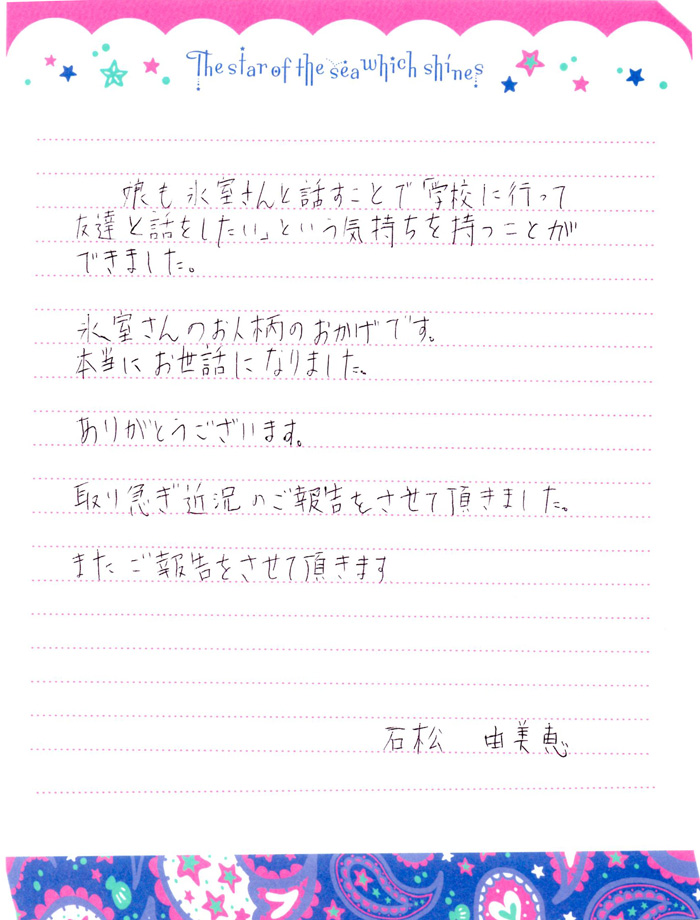 The star of the sea which shines
娘も氷室さんと話すことで「学校に行って
友達と話をしたい」という気持ちを持つことが
できました。
氷室さんのお人柄のおかげです。
本当にお世話になりました。
ありがとうございます。
取り急ぎ近況のご報告をさせて頂きました。
またご報告をさせて頂きます
石松 由美恵